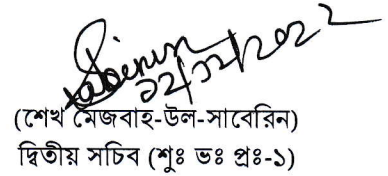 ১২/১২/২০২২
(শেখ মেজবাহ-উল-সাবেরিন)
দ্বিতীয় সচিব (শুঃ ভঃ প্রঃ-১)